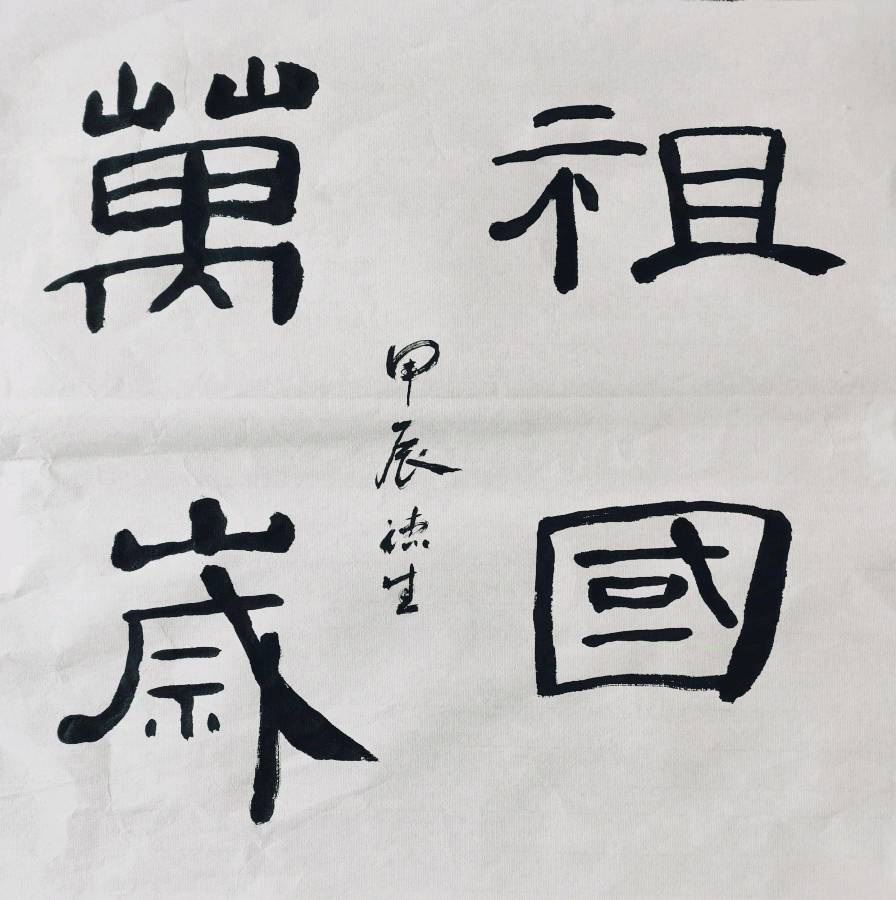 祖國
萬歲
甲辰德生